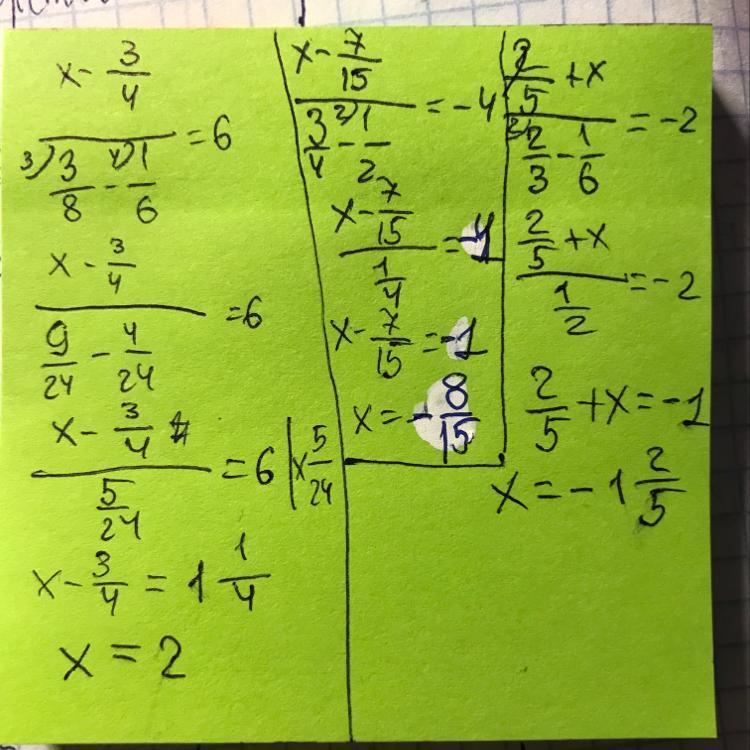 x - 3/4
3) 3/8 - 4) 1/6 = 6
x - 3/4
9/24 - 4/24 = 6
x - 3/4
5/24 = 6 | x 5/24
x - 3/4 = 1 1/4
x = 2
x - 7/15
3/4 - 2) 1/2 = -4
x - 7/15
1/4 = -4
x - 7/15 = -1
x = -8/15
2/5 + x
2) 2/3 - 1/6 = -2
2/5 + x
1/2 = -2
2/5 + x = -1
x = -1 2/5